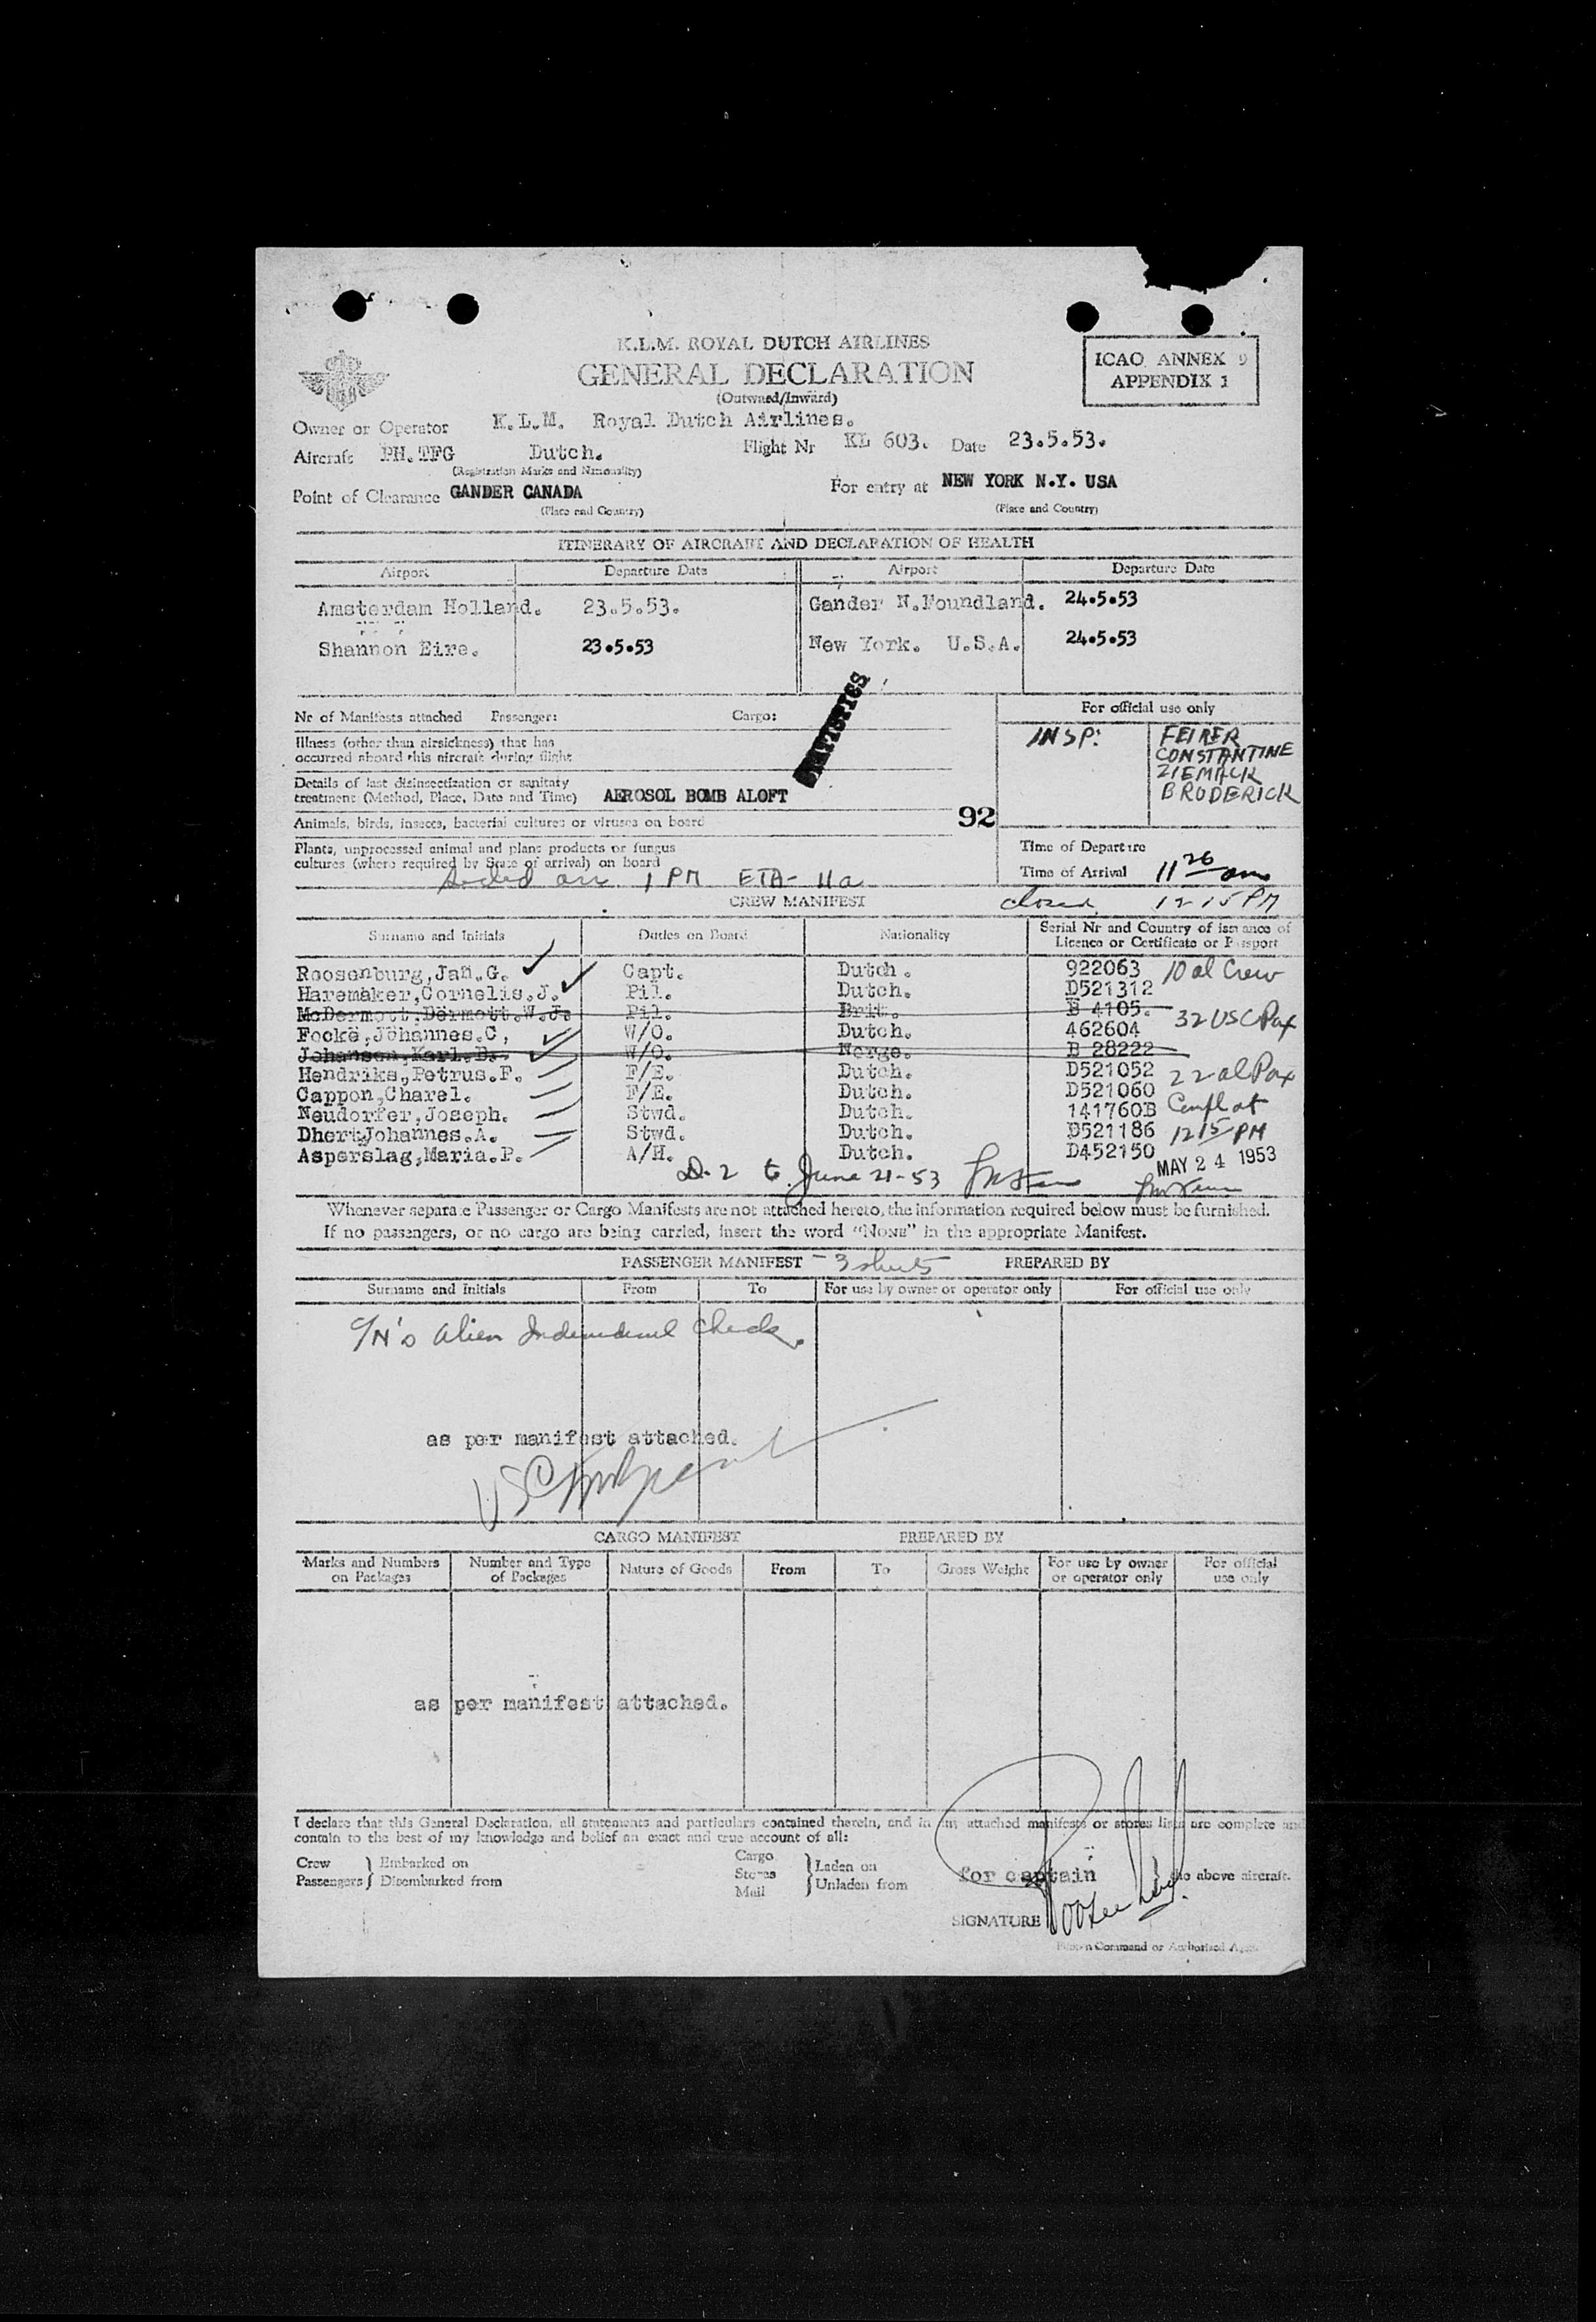 K.L.M. ROYAL DUTCH AIRLINES
GENERAL DECLARATION
(Outward/Inward)
ICAO ANNEX 9
APPENDIX 1
Owner or Operator K.L.M. Royal Dutch Airlines.
Aircraft PH.TFG Dutch. Flight Nr KL 603. Date 23.5.53.
(Registration Marks and Nationality)
Point of Clearance GANDER CANADA For entry at NEW YORK N.Y. USA
(Place and Country) (Place and Country)
ITINERARY OF AIRCRAFT AND DECLARATION OF HEALTH
Airport Departure Date Airport Departure Date
Amsterdam Holland. 23.5.53. Gander N.Foundland. 24.5.53
Shannon Eire. 23.5.53 New York. U.S.A. 24.5.53
Nr of Manifests attached Passenger: Cargo: For official use only
Illness (other than airsickness) that has
occurred aboard this aircraft during flight
INSP: FEIRER
CONSTANTINE
ZIEMACK
BRODERICK
Details of last disinsectization or sanitary
treatment (Method, Place, Date and Time) AEROSOL BOMB ALOFT
Animals, birds, insects, bacterial cultures or viruses on board 92
Plants, unprocessed animal and plant products or fungus
cultures (where required by State of arrival) on board
Time of Departure
Time of Arrival 11 26 am
1 PM ETA- 11a
CREW MANIFEST closed 12 15 PM
Surname and Initials Duties on Board Nationality Serial Nr and Country of issuance of
Licence or Certificate or Passport
Roosenburg,Jan.G. Capt. Dutch. 922063 10 al Crew
Haremaker,Cornelis.J. Pil. Dutch. D521312
McDermott.Dermott.W.J. Pil. Brit. B 4105. 32 USC Pax
Focke,Johannes.C, W/O. Dutch. 462604
Johansen,Karl.D. W/O. Norge. B 28222
Hendriks,Petrus.F. F/E. Dutch. D521052 22 al Pax
Cappon,Charel. F/E. Dutch. D521060
Neudorfer,Joseph. Stwd. Dutch. 141760B Compl at
Dhert,Johannes.A. Stwd. Dutch. D521186 12 15 PM
Asperslag,Maria.P. A/H. Dutch. D452150
D-2 to June 21-53 MAY 24 1953
Whenever separate Passenger or Cargo Manifests are not attached hereto, the information required below must be furnished.
If no passengers, or no cargo are being carried, insert the word “NONE” in the appropriate Manifest.
PASSENGER MANIFEST - 3 sheets PREPARED BY
Surname and Initials From To For use by owner or operator only For official use only
Alien Check.
as per manifest attached.
USC
CARGO MANIFEST PREPARED BY
Marks and Numbers
on Packages Number and Type
of Packages Nature of Goods From To Gross Weight For use by owner
or operator only For official
use only
as per manifest attached.
I declare that this General Declaration, all statements and particulars contained therein, and in any attached manifests or stores lists are complete and
contain to the best of my knowledge and belief an exact and true account of all:
Crew
Passengers } Embarked on
Disembarked from Cargo
Stores
Mail } Laden on
Unladen from for captain the above aircraft.
SIGNATURE
Pilot in Command or Authorised Agent